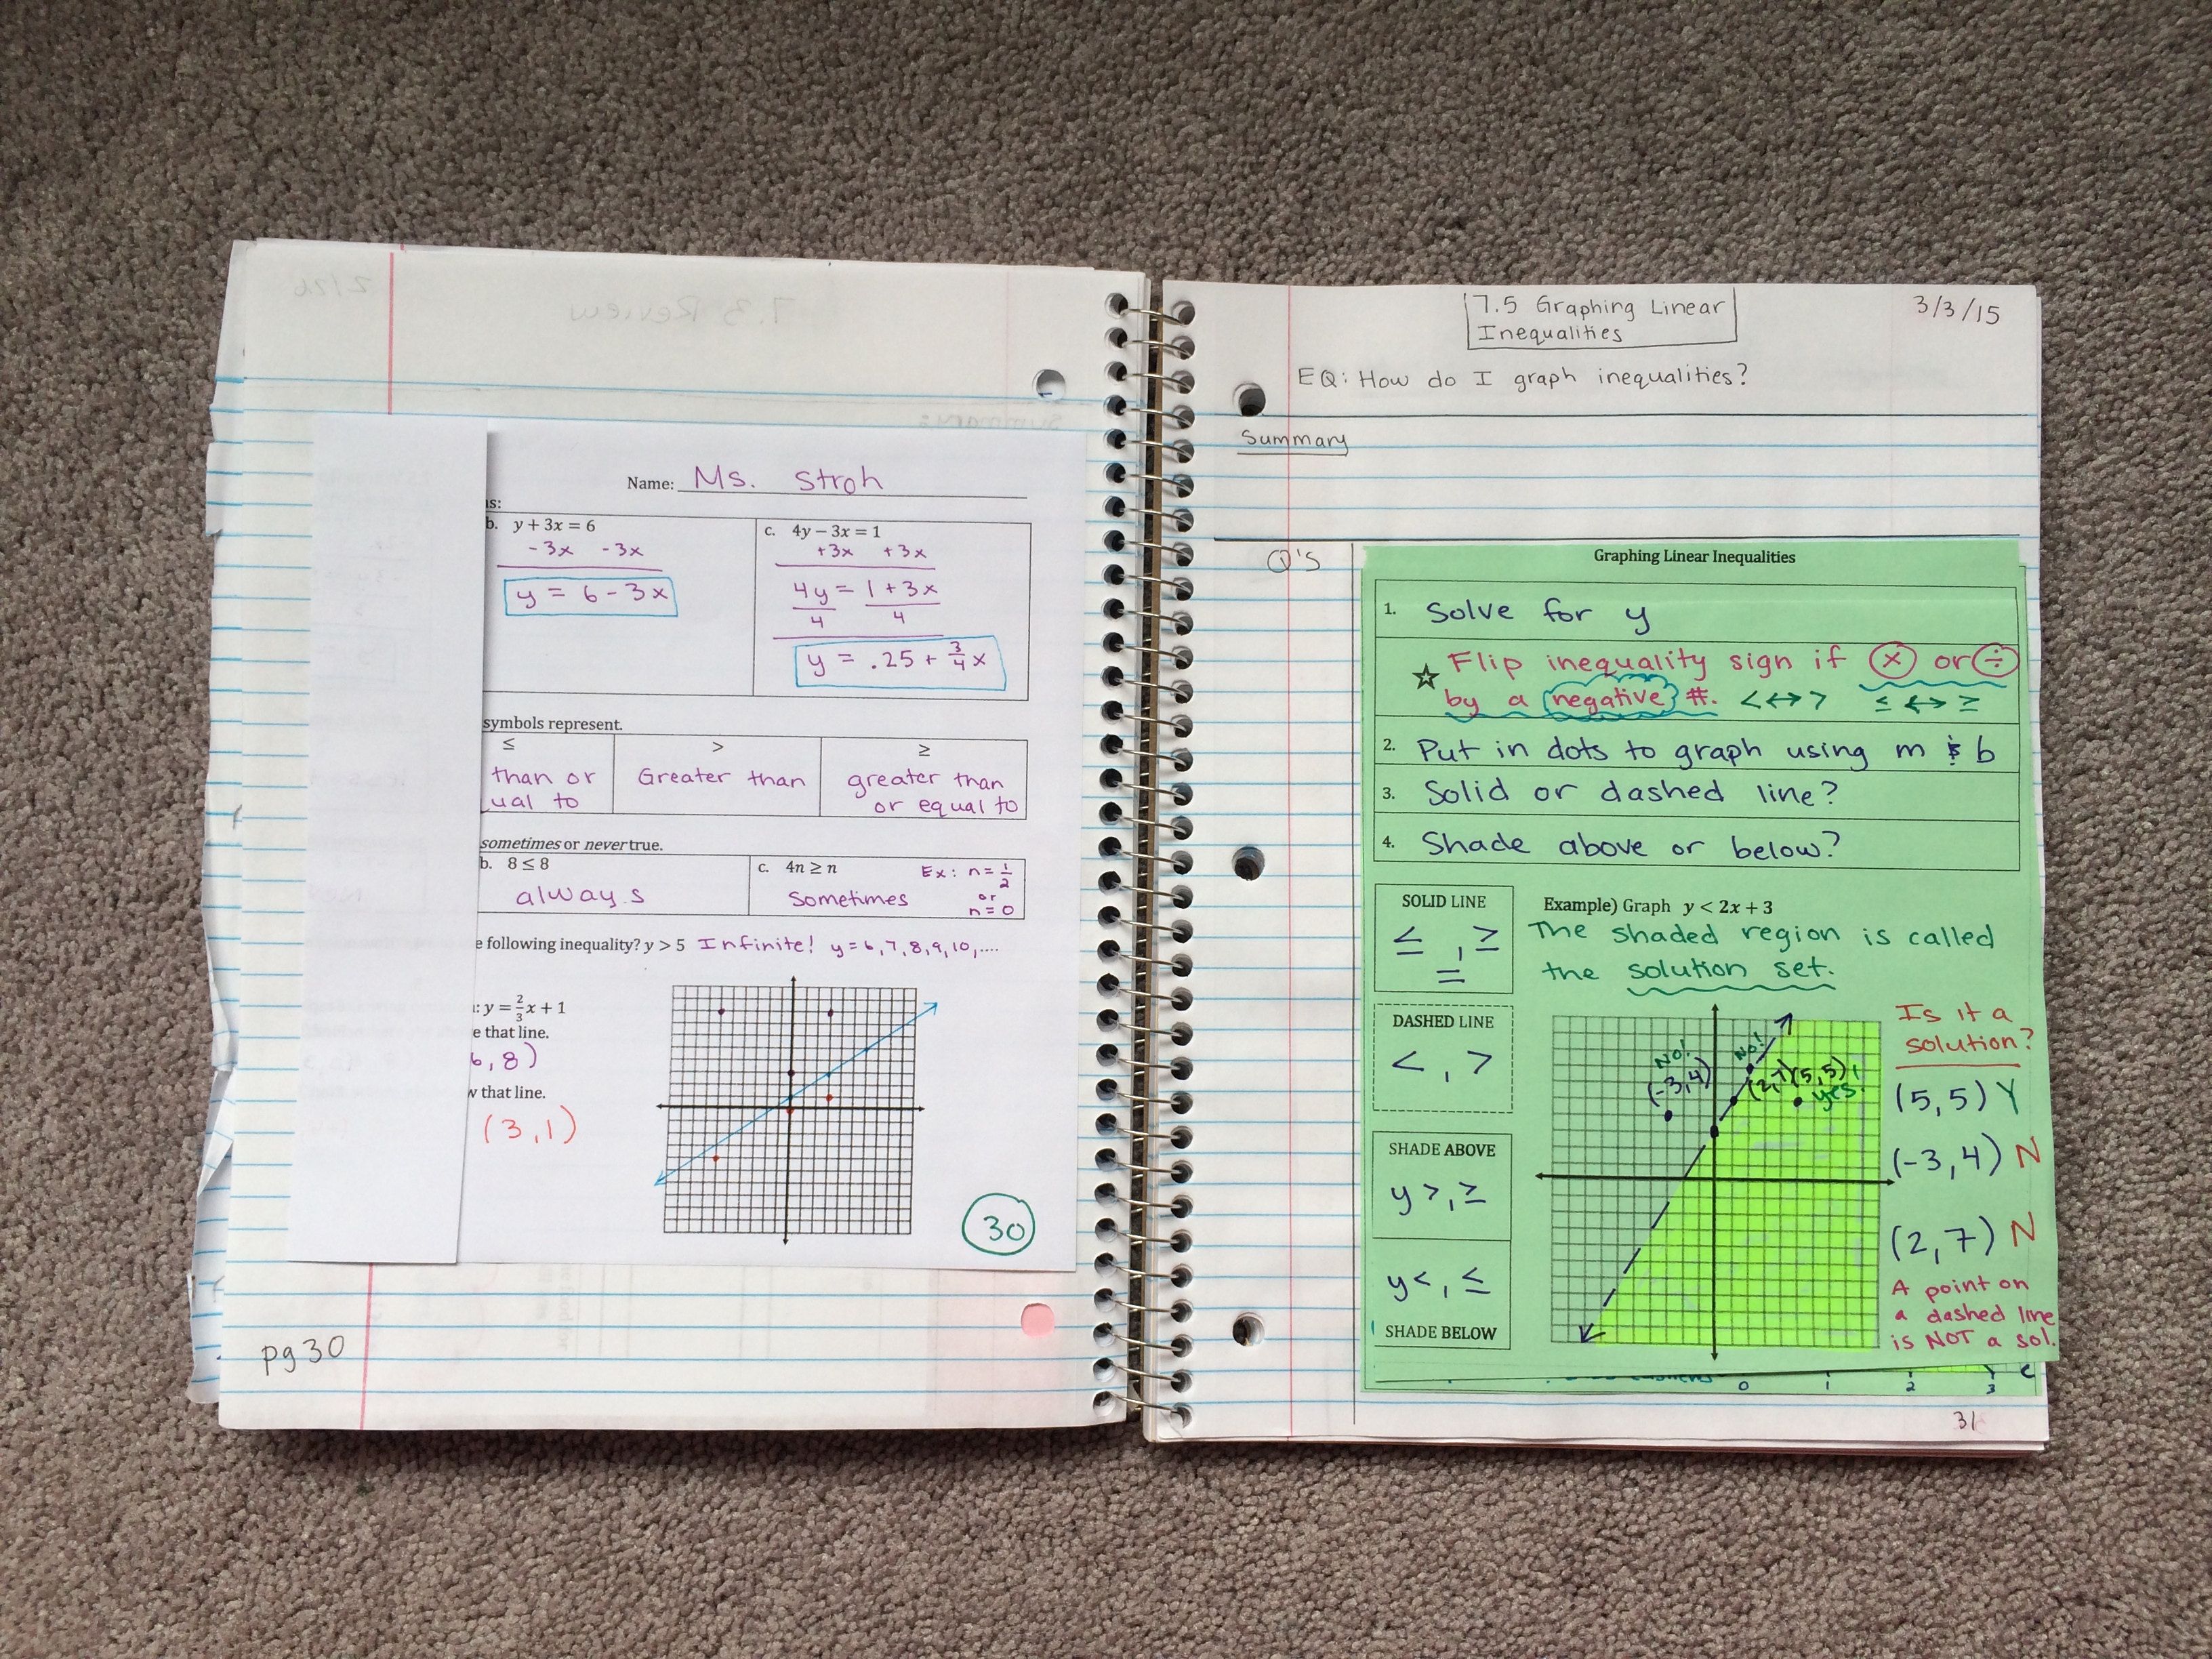 Name: Ms. Stroh
ns:
b. y + 3x = 6
-3x -3x
y = 6 - 3x
c. 4y – 3x = 1
+3x +3x
4y = 1 + 3x
4 4
y = .25 + 3/4 x
symbols represent.
≤
than or
ual to
>
Greater than
≥
greater than
or equal to
sometimes or never true.
b. 8 ≤ 8
always
c. 4n ≥ n
Sometimes
Ex: n = 1/2
or
n = 0
e following inequality? y > 5 Infinite! y = 6, 7, 8, 9, 10, ....
: y = 2/3 x + 1
e that line.
6, 8)
w that line.
(3, 1)
30
pg 30
7.5 Graphing Linear
Inequalities
3/3/15
EQ: How do I graph inequalities?
Summary
Q's
Graphing Linear Inequalities
1. Solve for y
☆ Flip inequality sign if × or ÷
by a negative #. < ↔ > ≤ ↔ ≥
2. Put in dots to graph using m & b
3. Solid or dashed line?
4. Shade above or below?
SOLID LINE
≤ , ≥
=
DASHED LINE
< , >
SHADE ABOVE
y >, ≥
y <, ≤
SHADE BELOW
Example) Graph y < 2x + 3
The shaded region is called
the solution set.
No!
(-3,4)
No!
(2,7)
(5,5)
yes!
Is it a
solution?
(5,5) Y
(-3,4) N
(2,7) N
A point on
a dashed line
is NOT a sol.
0 1 2 3 c
31